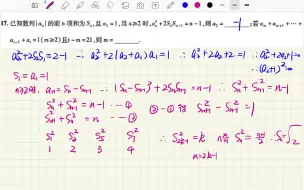 17. 已知数列{aₙ}的前n项和为Sₙ,且a₁=1,当n≥2时,aₙ²+2SₙSₙ₋₁=n-1,则a₂= -1 .若aₘ+aₘ₊₁+⋯+
aₜ₋₁+aₜ=1(m≥2)且t-m=21,则m=
a₂²+2S₂S₁=2-1 ∴ a₂²+2(a₂+a₁)a₁=1 ∴ a₂²+2a₂+2=1 ∴ a₂²+2a₂+1=0
S₁=a₁=1 ∴(a₂+1)²=0
n≥2时, aₙ=Sₙ-Sₙ₋₁ ∴(Sₙ-Sₙ₋₁)²+2SₙSₙ₋₁=n-1 ∴ Sₙ²+Sₙ₋₁²=n-1
Sₙ²+Sₙ₋₁²=n-1 ⋯①
Sₙ₊₁²+Sₙ²=n ⋯② ②-① 得 Sₙ₊₁²-Sₙ₋₁²=1
S₁² S₃² S₅² S₇²
1 2 3 4
n=2k-1